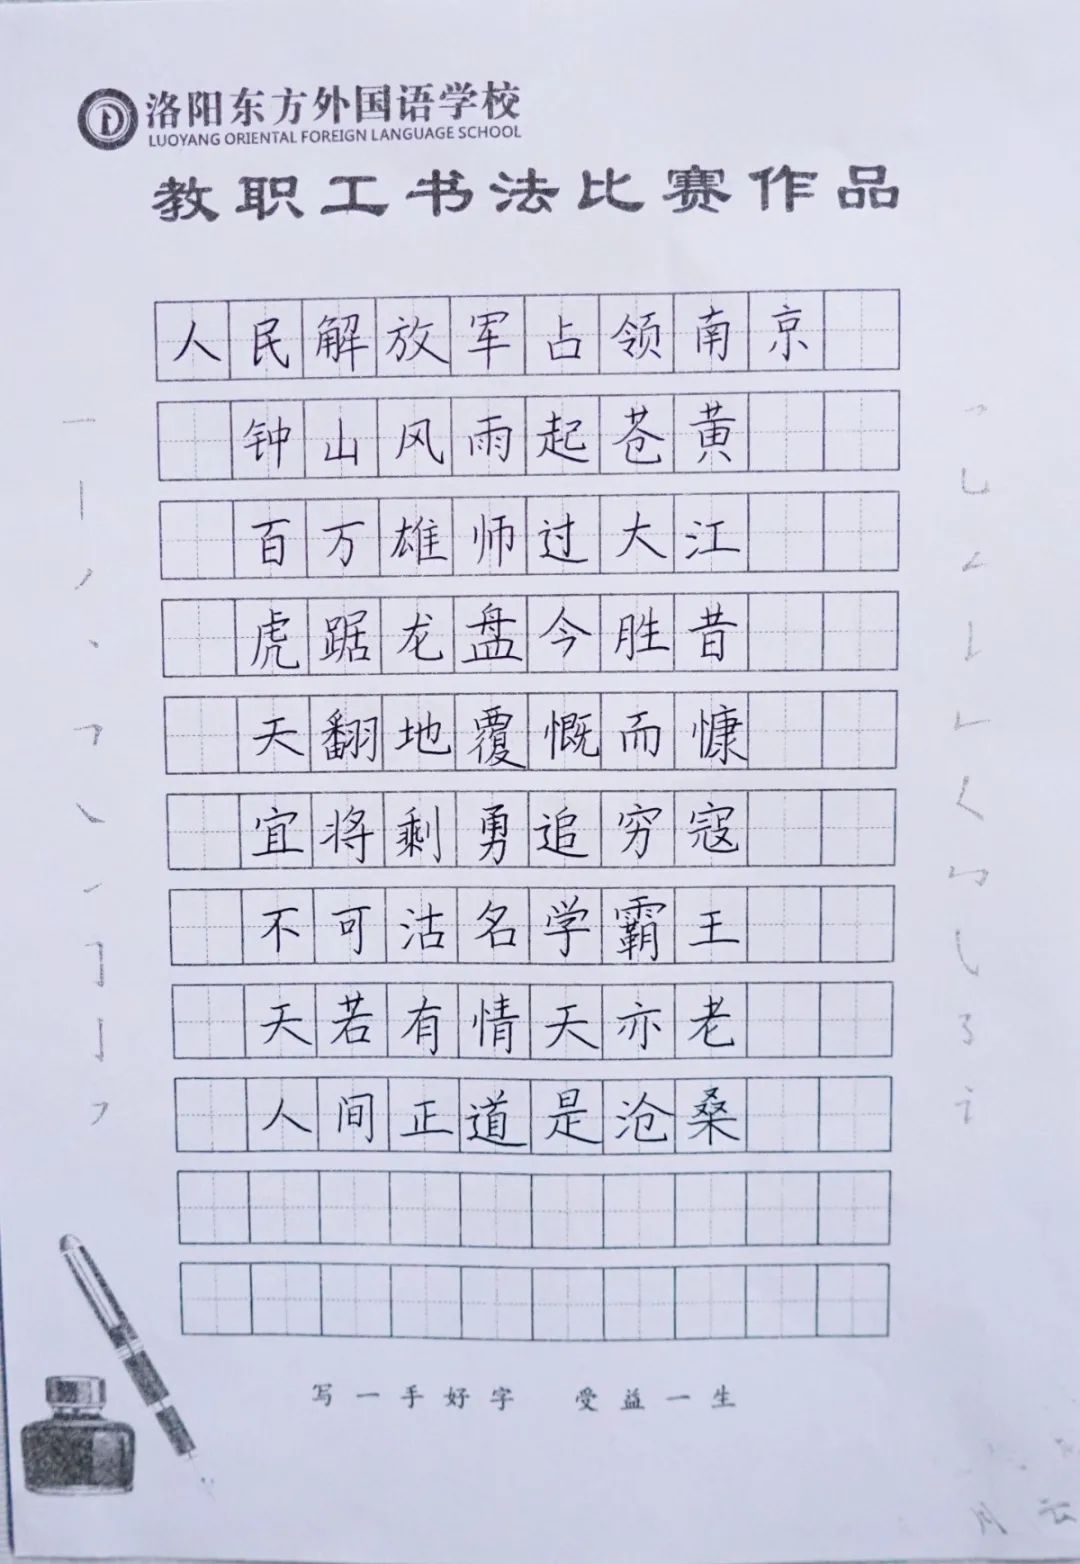 洛阳东方外国语学校
LUOYANG ORIENTAL FOREIGN LANGUAGE SCHOOL
教职工书法比赛作品
人民解放军占领南京
钟山风雨起苍黄
百万雄师过大江
虎踞龙盘今胜昔
天翻地覆慨而慷
宜将剩勇追穷寇
不可沽名学霸王
天若有情天亦老
人间正道是沧桑
写一手好字 受益一生